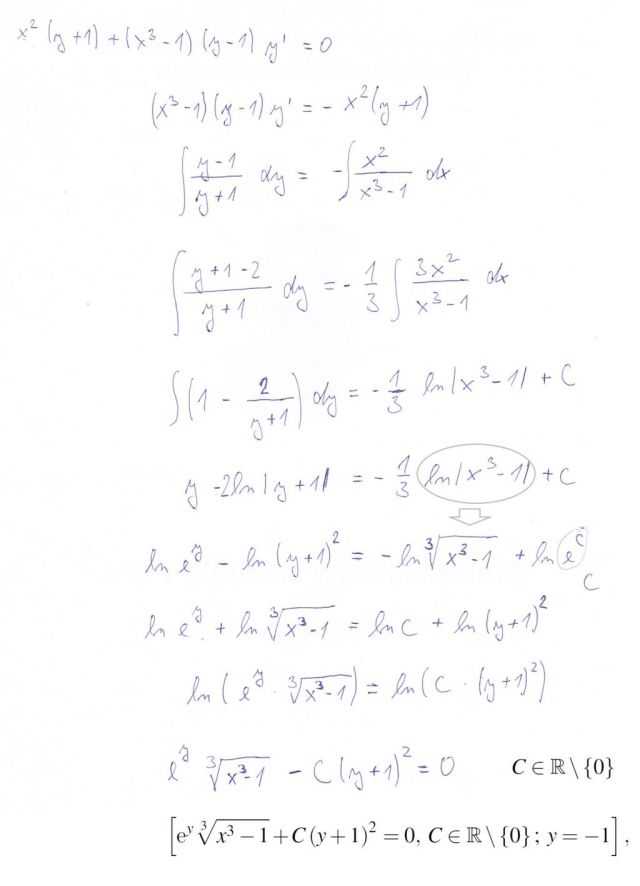 x² (y+1) + (x³-1) (y-1) y' = 0
(x³-1)(y-1) y' = - x²(y+1)
∫ (y-1)/(y+1) dy = -∫ x²/(x³-1) dx
∫ (y+1-2)/(y+1) dy = - 1/3 ∫ 3x²/(x³-1) dx
∫ (1 - 2/(y+1)) dy = - 1/3 ln|x³-1| + C
y - 2ln|y+1| = - 1/3 ln|x³-1| + C
ln e^y - ln (y+1)² = - ln ∛(x³-1) + ln e^C
C
ln e^y + ln ∛(x³-1) = ln C + ln (y+1)²
ln ( e^y · ∛(x³-1) ) = ln ( C · (y+1)² )
e^y ∛(x³-1) - C (y+1)² = 0 C ∈ ℝ \ {0}
[ e^y ∛(x³-1) + C (y+1)² = 0, C ∈ ℝ \ {0} ; y = -1 ] ,